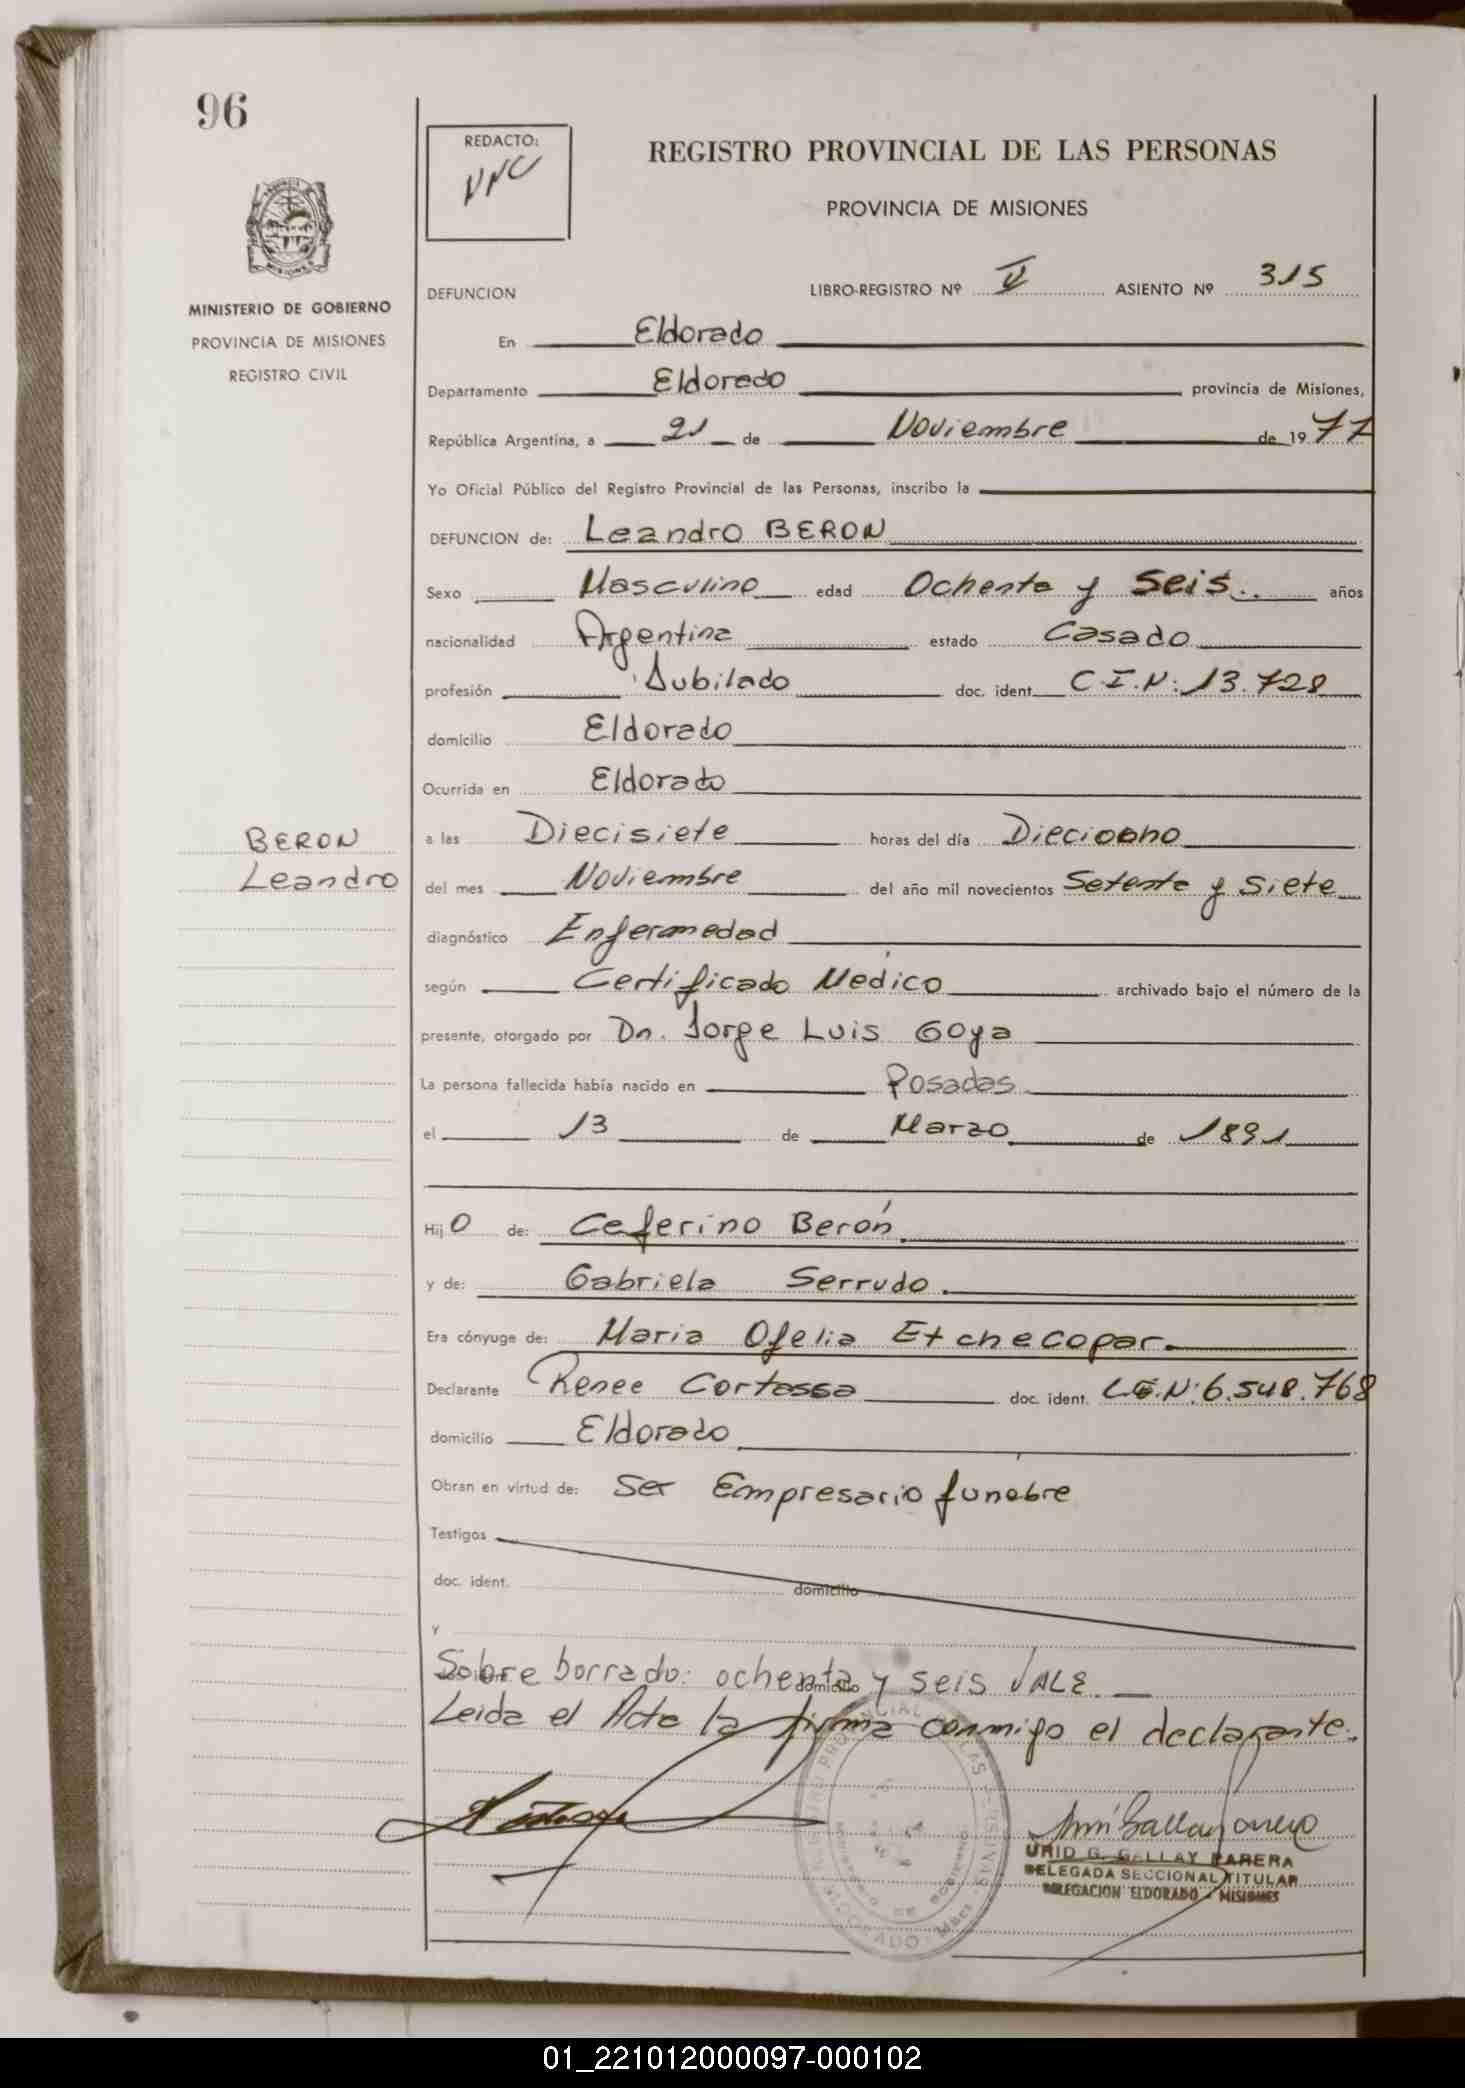 96
REDACTO:
REGISTRO PROVINCIAL DE LAS PERSONAS
PROVINCIA DE MISIONES
MINISTERIO DE GOBIERNO
PROVINCIA DE MISIONES
REGISTRO CIVIL
DEFUNCION LIBRO-REGISTRO Nº II ASIENTO Nº 315
En Eldorado
Departamento Eldorado provincia de Misiones,
República Argentina, a 21 de Noviembre de 1977
Yo Oficial Público del Registro Provincial de las Personas, inscribo la
DEFUNCION de: Leandro BERON
Sexo Masculino edad Ochenta y Seis años
nacionalidad Argentina estado Casado
profesión Jubilado doc. ident. C.I.N: 13.728
domicilio Eldorado
Ocurrida en Eldorado
BERON
Leandro
a las Diecisiete horas del día Dieciocho
del mes Noviembre del año mil novecientos Setenta y Siete
diagnóstico Enfermedad
según Certificado Medico archivado bajo el número de la
presente, otorgado por Dr. Jorge Luis Goya
La persona fallecida había nacido en Posadas
el 13 de Marzo de 1891
Hijo de: Ceferino Berón
y de: Gabriela Serrudo
Era cónyuge de: Maria Ofelia Etchecopar
Declarante Renee Cortassa doc. ident. L.E.N: 6.548.768
domicilio Eldorado
Obran en virtud de: Ser Empresario funebre
Testigos
doc. ident. domicilio
y
Sobre borrado: ochenta y seis VALE.
Leida el Acta la firma conmigo el declarante.
URID G. GALLAY PARERA
DELEGADA SECCIONAL TITULAR
DELEGACION ELDORADO - MISIONES
01_221012000097-000102